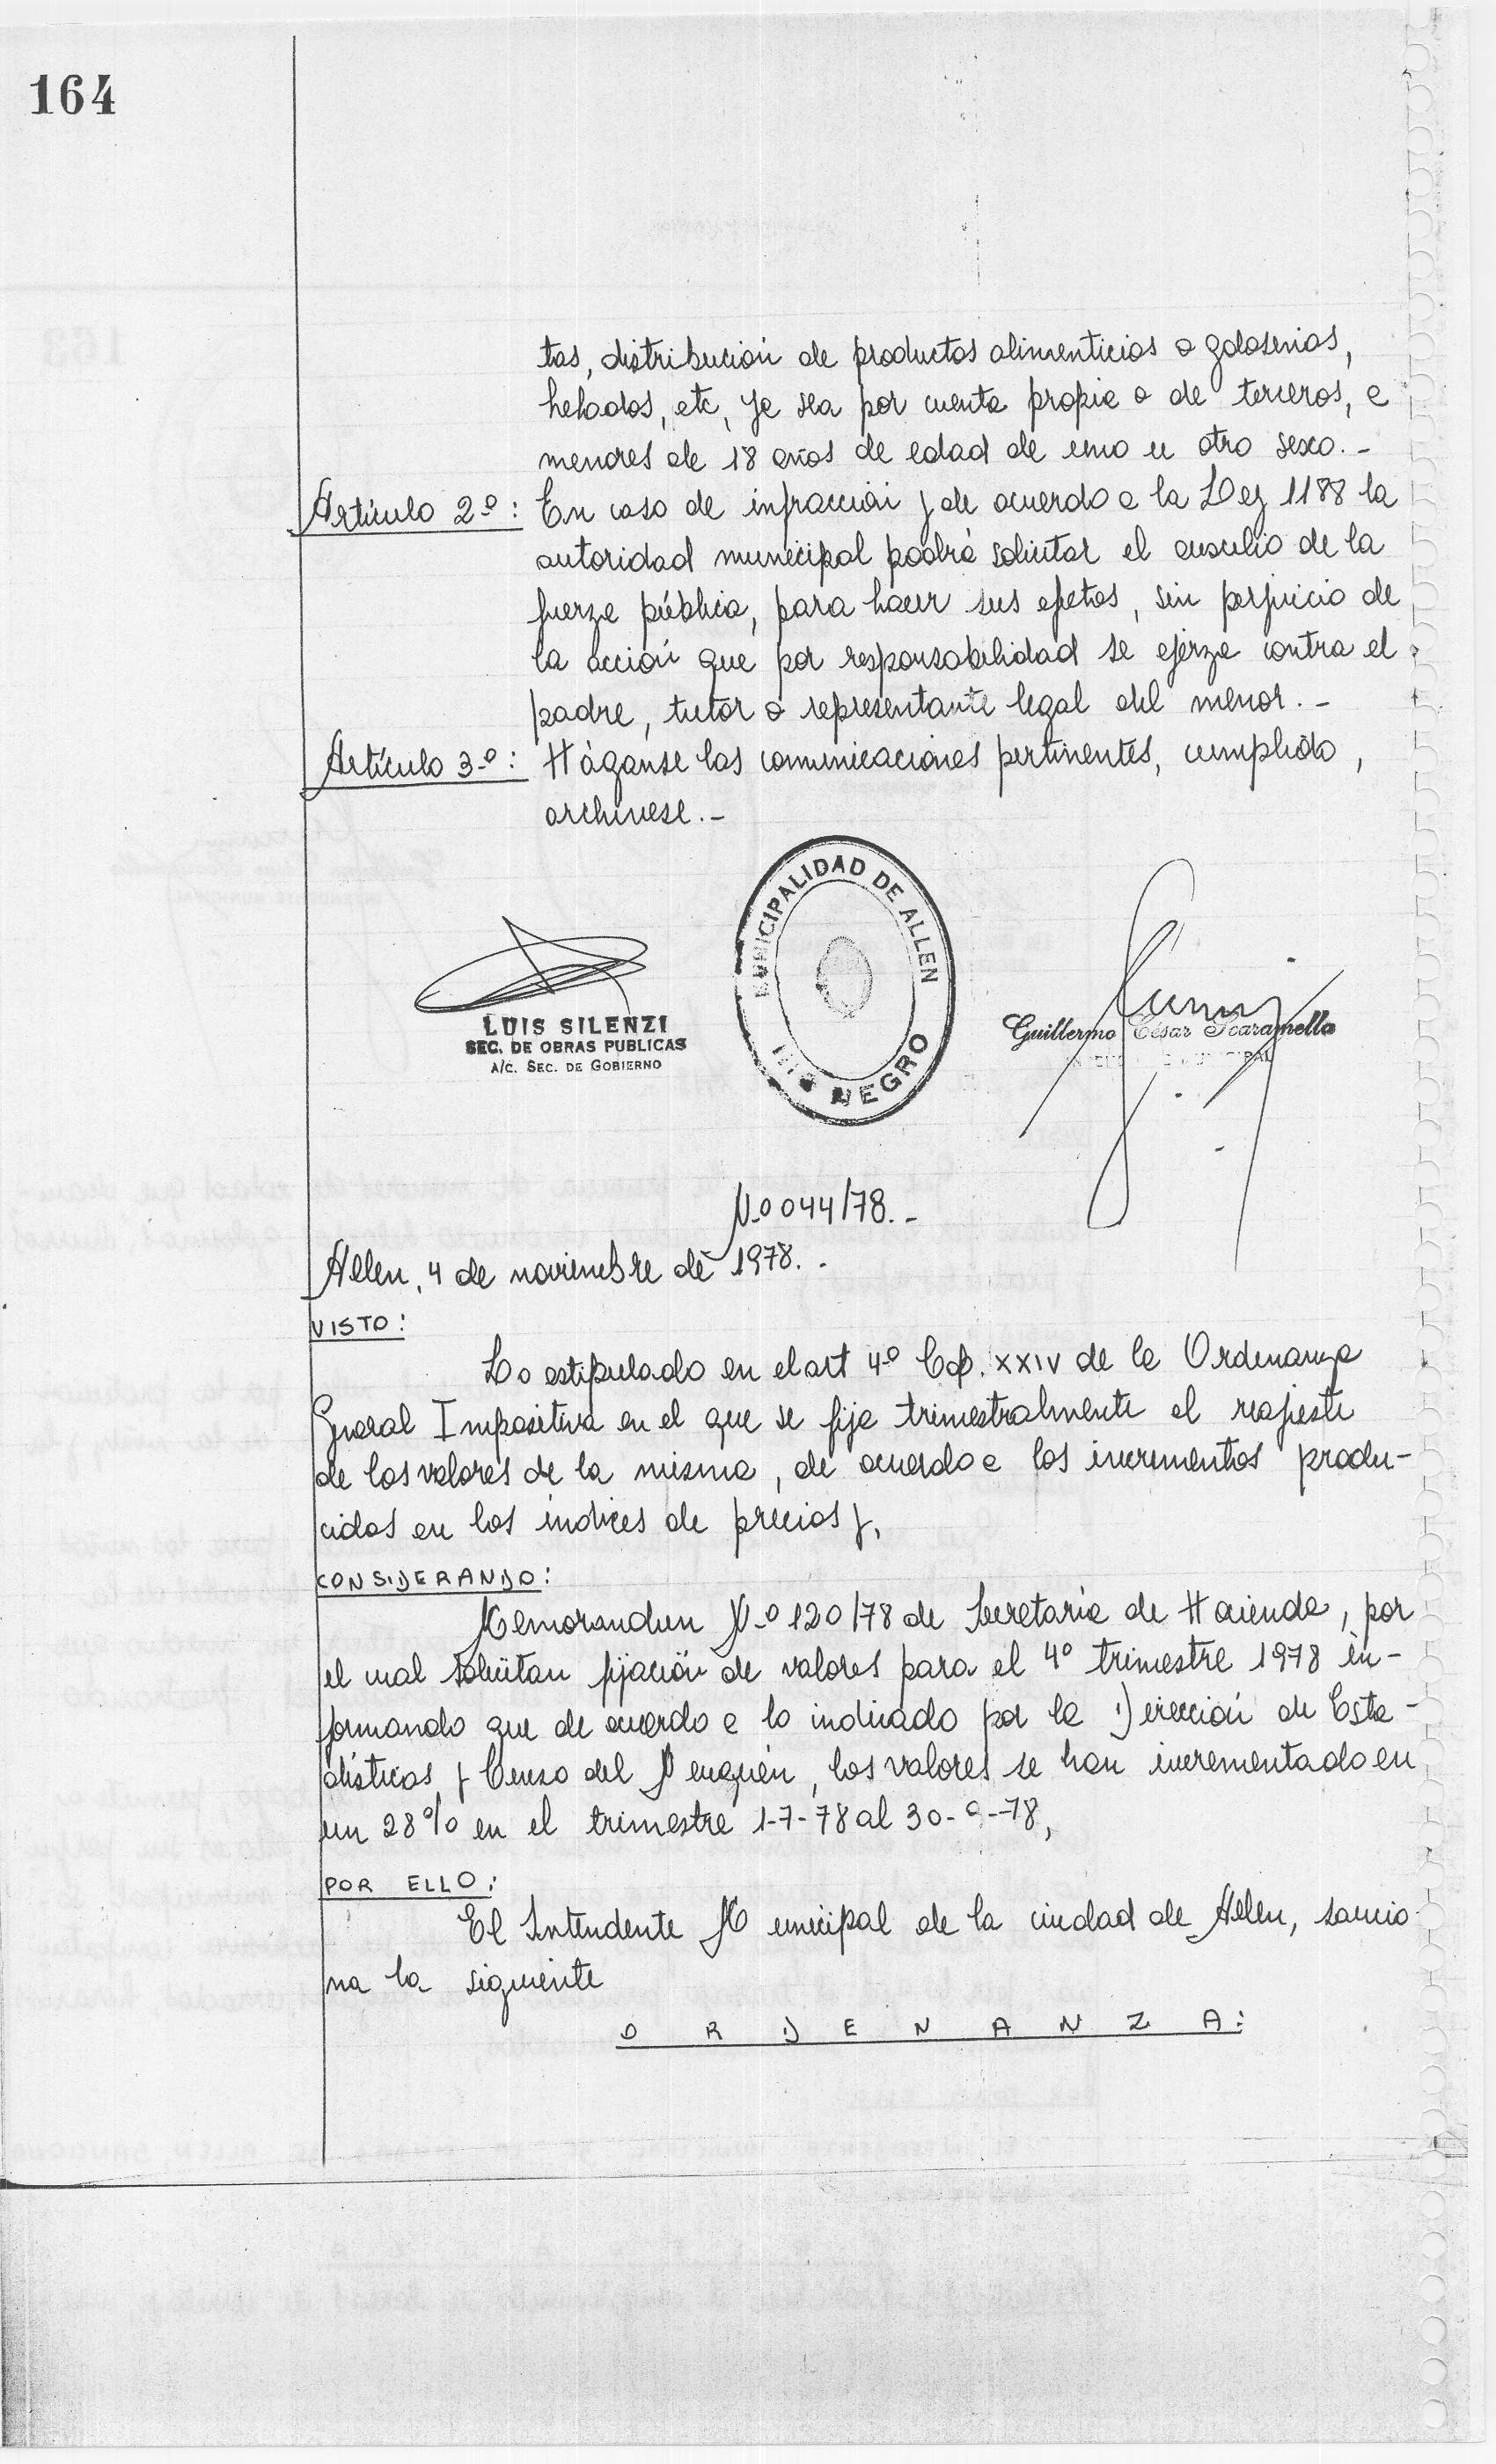 164
tas, distribución de productos alimenticios o golosinas,
helados, etc, ya sea por cuenta propia o de terceros, a
menores de 18 años de edad de uno u otro sexo.-
Artículo 2º: En caso de infracción y de acuerdo a la Ley 1188 la
autoridad municipal podrá solicitar el auxilio de la
fuerza pública, para hacer sus efetos, sin perjuicio de
la acción que por responsabilidad se ejerza contra el
padre, tutor o representante legal del menor.-
Artículo 3º: Háganse las comunicaciones pertinentes, cumplido,
archívese.-
MUNICIPALIDAD DE ALLEN
RIO NEGRO
LUIS SILENZI
SEC. DE OBRAS PUBLICAS
A/C. SEC. DE GOBIERNO
Guillermo César Scaramella
INTENDENTE MUNICIPAL
Nº 044/78.-
Allen, 4 de noviembre de 1978.-
VISTO:
Lo estipulado en el art 4º Cap. XXIV de la Ordenanza
Gneral Impositiva en el que se fija trimestralmente el reajuste
de los valores de la misma, de acuerdo a los incrementos produ-
cidos en los índices de precios y,
CONSIDERANDO:
Memorandun Nº 120/78 de Secretaría de Hacienda, por
el cual solicitan fijación de valores para el 4º trimestre 1978 in-
formando que de acuerdo a lo indicado por la Dirección de Esta-
dísticas y Censo del Neuquén, los valores se han incrementado en
un 28% en el trimestre 1-7-78 al 30-9-78,
POR ELLO:
El Intendente Municipal de la ciudad de Allen, sancio-
na la siguiente
O R D E N A N Z A: